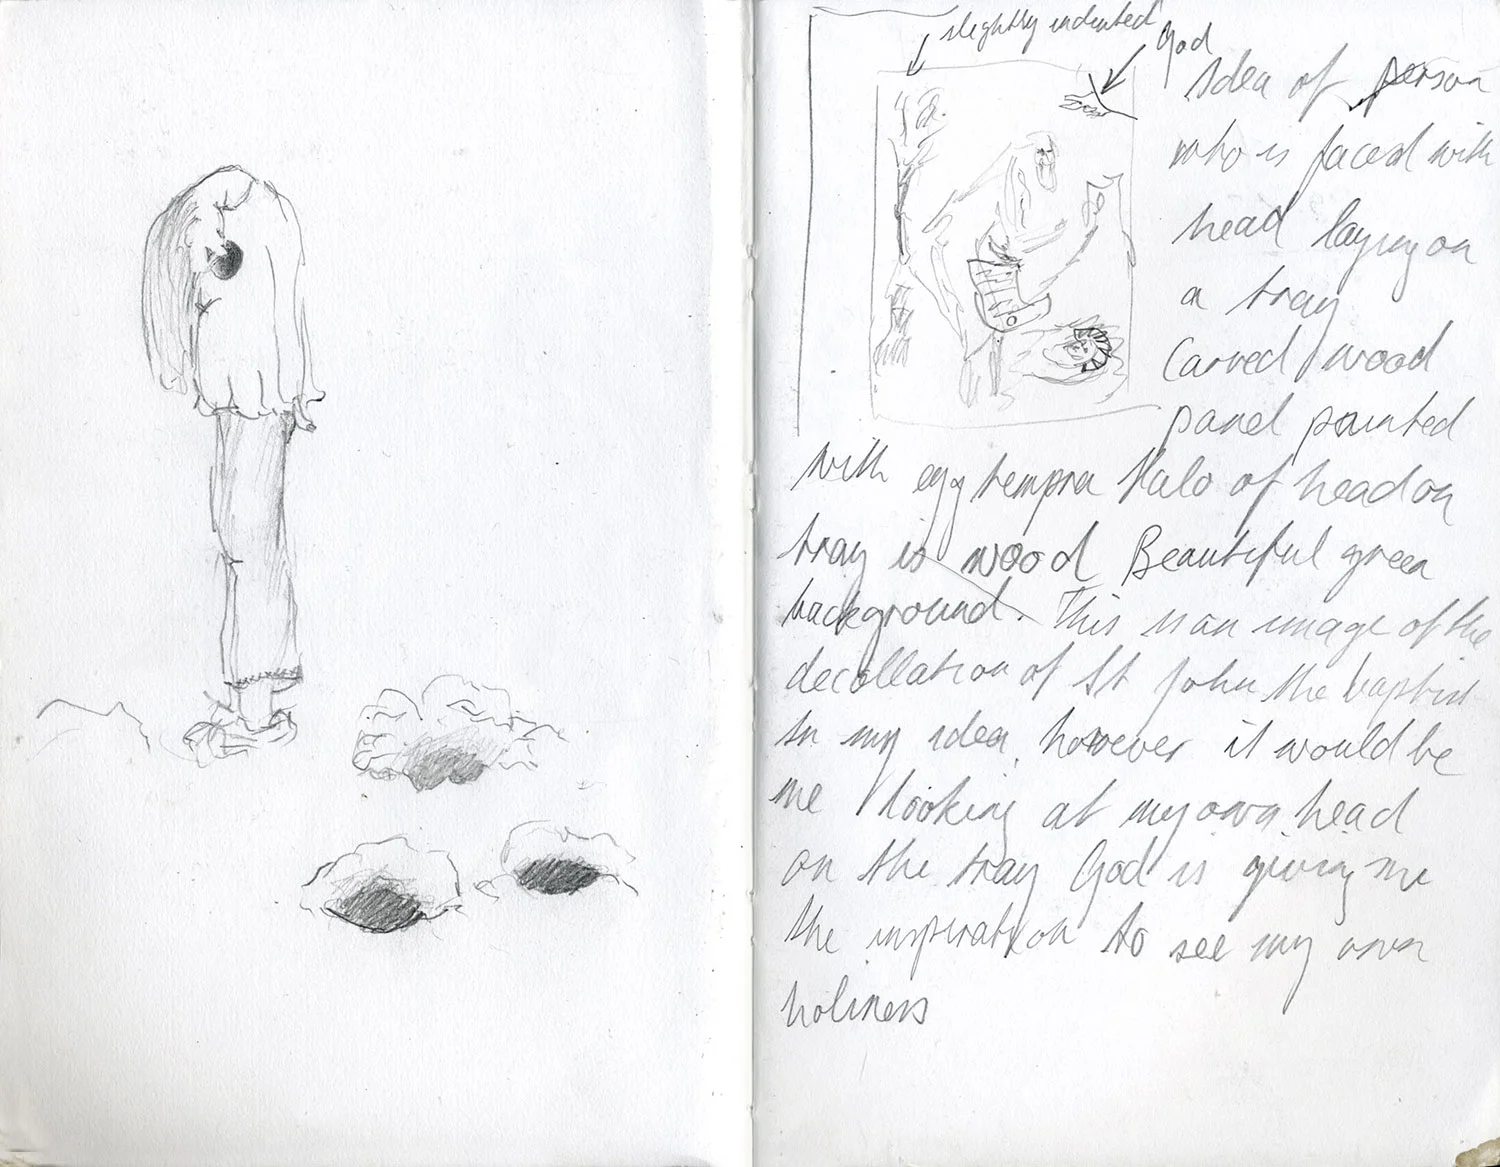 slightly indented
God
Idea of person
who is faced with
head laying on
a tray
Carved wood
panel painted
with egg tempra Halo of head on
tray is wood Beautiful green
background. This is an image of the
decollation of St John the baptist
In my idea, however it would be
me looking at my own head
on the tray God is giving me
the inspiration to see my own
holiness